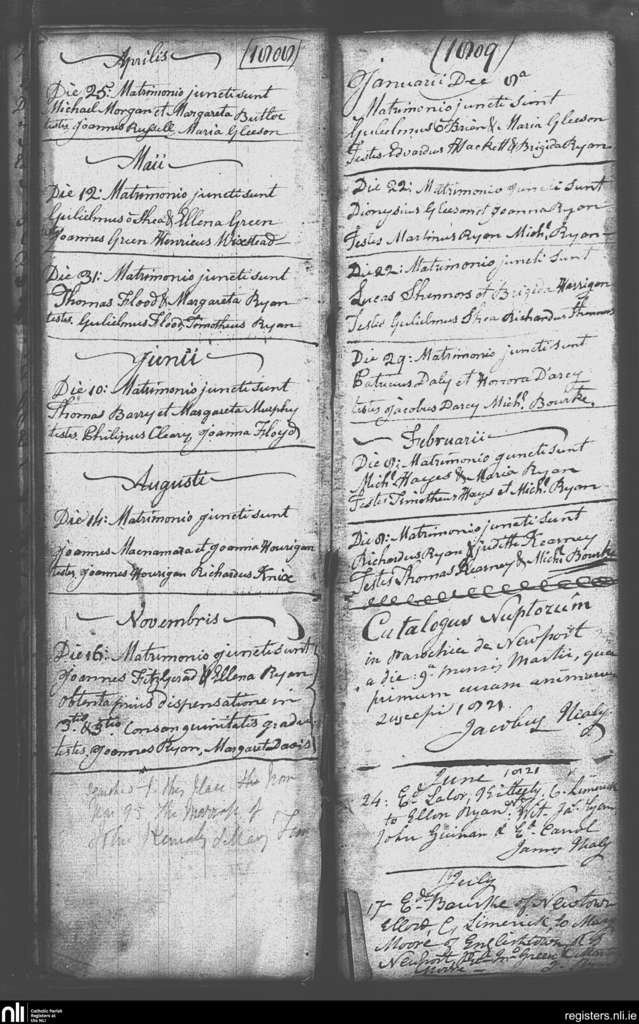 Aprilis (1808)
Die 25: Matrimonio juncti sunt
Michael Morgan et Margareta Butler
testes Joannes Russell Maria Gleeson
Maii
Die 12: Matrimonio juncti sunt
Gulielmus o Shea & Ellena Green
Joannes Green Henricus
Die 31: Matrimonio juncti sunt
Thomas Flood & Margareta Ryan
testes, Gulielmus Flood, Timotheus Ryan
Junii
Die 10: Matrimonio juncti sunt
Thomas Barry et Margareta Murphy
testes, Philipus Cleary, Joanna Floyd
Auguste
Die 14: Matrimonio juncti sunt
Joannes Macnamara et Joanna Hourigan
testes, Joannes Hourigan Richardus Knix
Novembris
Die 16: Matrimonio juncti sunt
Joannes Fitzgerad & Ellena Ryan
obtenta prius dispensatione in
3tio & 3tio consanguinitatis gradu
testes, Joannes Ryan, Margareta Davis
this place the
the marriage of
John & Mary
(1809)
Januarii Dee 8a
Matrimonio juncti sunt
Gulielmus o Brien & Maria Gleeson
Testes Edvardus Hackett & Brigida Ryan
Die 22: Matrimonio juncti sunt
Dionysius Gleeson et Joanna Ryan
Testes Martinus Ryan Michl. Ryan
Die 22: Matrimonio juncti sunt
Lucas Shennors et Brigida Harrigan
Testes Gulielmus Shea Richardus Shennors
Die 29: Matrimonio juncti sunt
Patricius Daly et Honora Darcy
testes Jacobus Darcy Michl. Bourke
Februarii
Die 8: Matrimonio juncti sunt
Michl. Hayes & Maria Ryan
Testes Timotheus Hays et Michl. Ryan
Die 8: Matrimonio juncti sunt
Richardus Ryan & Judith Kearney
Testes Thomas Kearney & Michl. Bourke
Catalogus Nuptorum
in Parochia de Newport
a die: 9a mensis Martii, qua
primum curam animarum
suscepi 1821.
Jacobus Healy
June 1821
24: Ed. Lalor, C. Limerick
to Ellen Ryan; Wit. Jas. Ryan
John & Ed. Carrol
James Healy
July
17 Ed. Bourke of Newtown
Ellard, C. Limerick to Mary
Moore of Englishtown
Newport, Green
nli Catholic Parish
Registers at
the NLI
registers.nli.ie